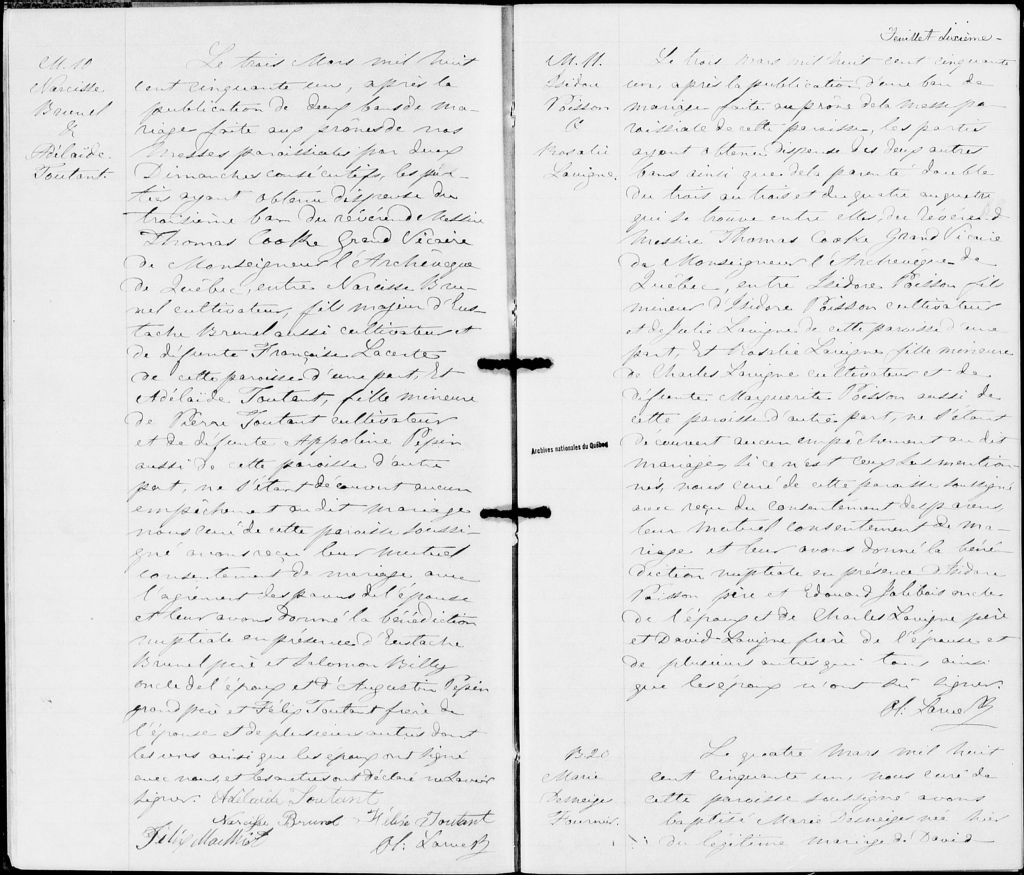 M. 10
Narcisse
Brunel
&
Adélaïde
Toutant.
Le trois Mars mil huit
cent cinquante un, après la
publication de deux bans de ma-
riage faite aux prônes de nos
Messes paroissiales par deux
Dimanches consécutifs, les par-
ties ayant obtenu dispense du
troisième ban du révérend Messire
Thomas Cooke Grand Vicaire
de Monseigneur l'Archevêque
de Québec, entre Narcisse Bru-
nel cultivateur, fils majeur d'Eus-
tache Brunel aussi cultivateur et
de défunte Françoise Lacerte
de cette paroisse d'une part, Et
Adélaïde Toutant, fille mineure
de Pierre Toutant cultivateur
et de défunte Appoline Pepin
aussi de cette paroisse d'autre
part, ne s'étant découvert aucun
empêchement au dit mariage
nous curé de cette paroisse soussi-
gné avons reçu leur mutuel
consentement de mariage avec
l'agrément des parens de l'épouse
et leur avons donné la bénédiction
nuptiale en présence d'Eustache
Brunel père et Salomon Billy
oncle de l'époux et d'Augustin Pepin
grand père et Félix Toutant frère de
l'épouse et de plusieurs autres dont
les uns ainsi que les époux ont signé
avec nous et les autres ont déclaré ne savoir
signer. Adélaide Toutant
Narcisse Brunel Félix Toutant
Félix Mailhiot Ol: Larue Ptr
Archives nationales du Québec
Feuillet Sixième -
M. 11.
Isidore
Poisson
&
Rosalie
Lavigne.
Le trois mars mil huit cent cinquante
un, après la publication d'un ban de
mariage faite au prône de la messe pa-
roissiale de cette paroisse, les parties
ayant obtenu dispense des deux autres
bans ainsi que de la parenté double
du trois au trois et du quatre au quatre
qui se trouve entre elles, du Révérend
Messire Thomas Cooke Grand Vicaire
de Monseigneur l'Archevêque de
Québec, entre Isidore Poisson fils
mineur d'Isidore Poisson cultivateur
et de Julie Lavigne de cette paroisse d'une
part, Et Rosalie Lavigne fille mineure
de Charles Lavigne cultivateur et de
défunte Marguerite Poisson aussi de
cette paroisse d'autre part, ne s'étant
découvert aucun empêchement au dit
mariage, si ce n'est ceux susmention-
nés, nous curé de cette paroisse soussigné
avec reçu du consentement des parens,
leur mutuel consentement de ma-
riage et leur avons donné la béné-
diction nuptiale en présence d'Isidore
Poisson père et Edouard Jalibois oncle
de l'époux et de Charles Lavigne père
et David Lavigne frère de l'épouse et
de plusieurs autres qui tous ainsi
que les époux n'ont su signer.
Ol: Larue Ptr
B. 20
Marie
Desneiges
Fournier.
Le quatre mars mil huit
cent cinquante un, nous curé de
cette paroisse soussigné avons
baptisé Marie Desneiges née hier
du légitime mariage de David